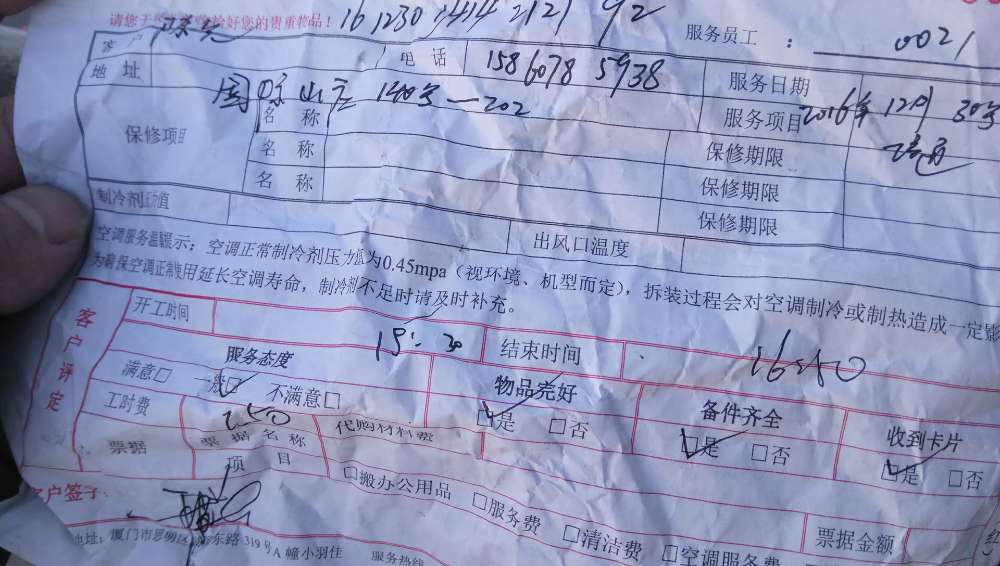 请您于 检好您的贵重物品！ 161230 1414 2121 92
服务员工 ： 0021
客户 电 话 158 6078 5938 服务日期 2016年 12月 30号
地 址 国 山庄 140号－202 服务项目
保修项目 名 称 保修期限
名 称 保修期限
名 称 保修期限
制冷剂压力值 出风口温度
空调服务温馨提示：空调正常制冷剂压力值为0.45mpa（视环境、机型而定），拆装过程会对空调制冷或制热造成一定影
为确保空调正常使用延长空调寿命，制冷剂不足时请及时补充。
客户评定
开工时间 15：30 结束时间 16:40
服务态度 物品完好 备件齐全 收到卡片
满意□ 一般□ 不满意□ □是 □否 □是 □否 □是 □否
工时费 250 代购材料费
票据 票据名称 项 目 □搬办公用品 □服务费 □清洁费 □空调服务费 票据金额
客户签字：
地址：厦门市思明区 东路319号A幢小羽佳 服务热线